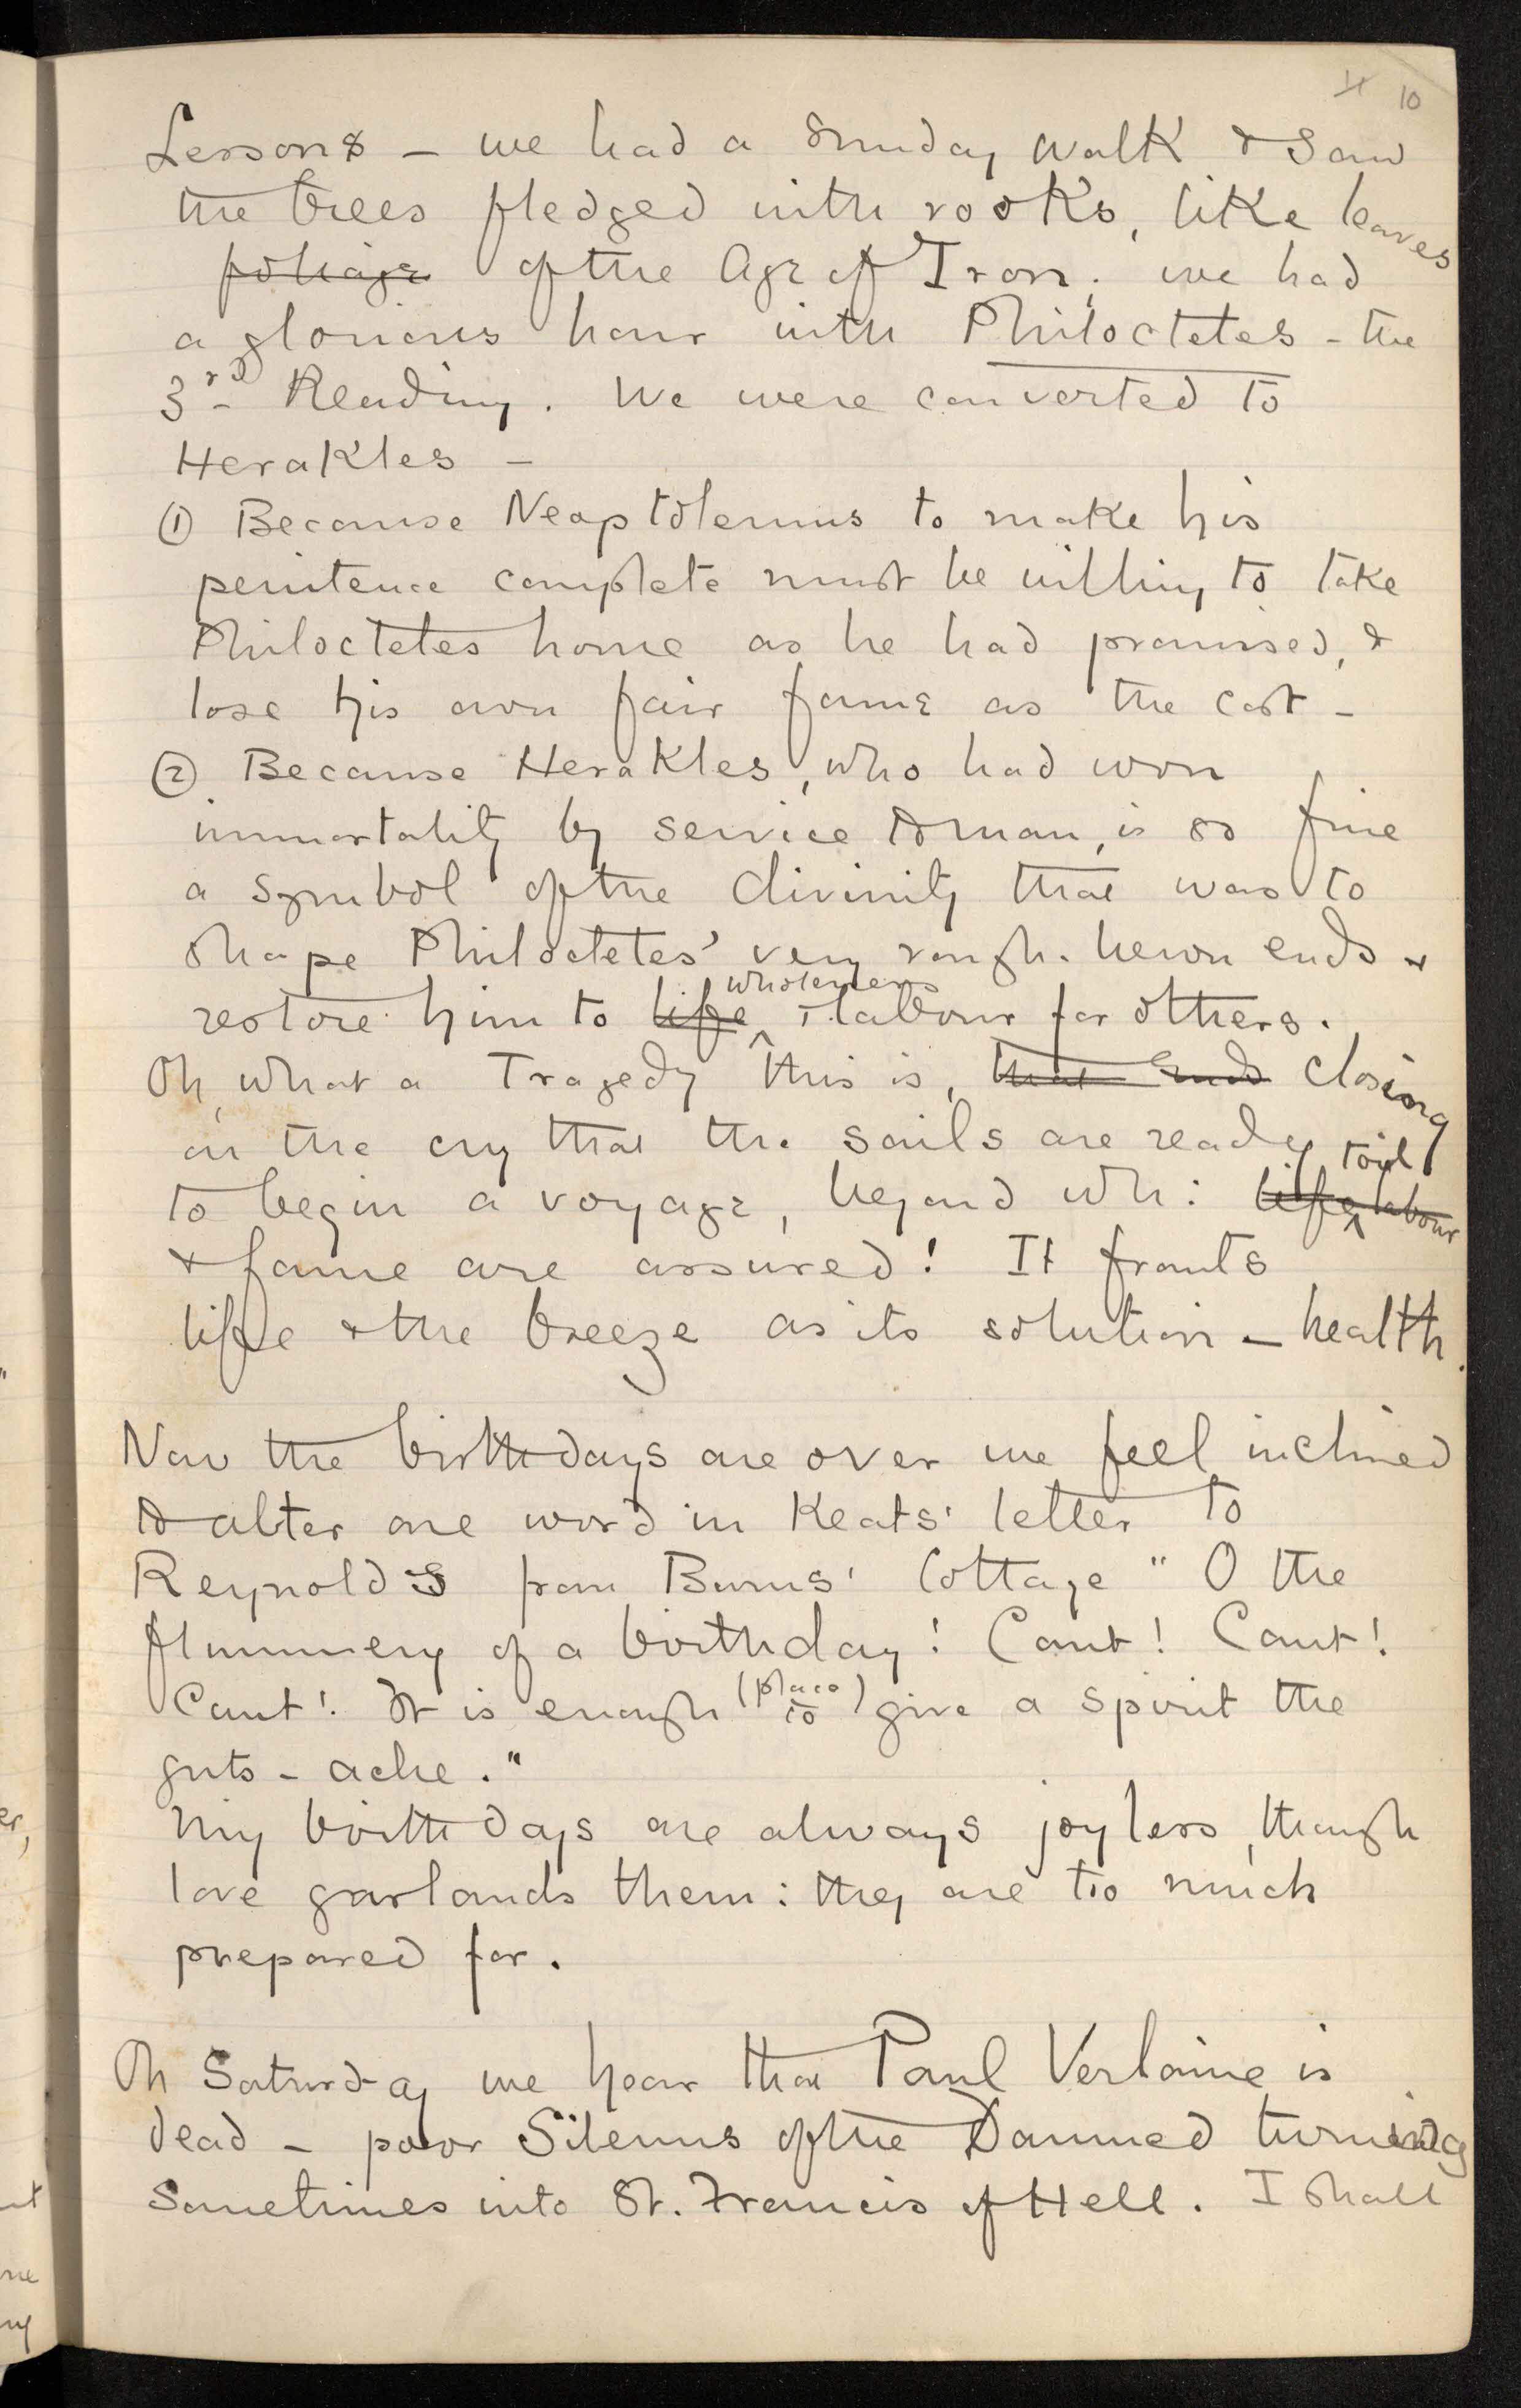 10
Lessons – we had a Sunday walk & saw
the trees fledged with rooks, like leaves
foliage of the Age of Iron; we had
a glorious hour with Philoctetes - the
3rd Reading. We were converted to
Herakles –
(1) Because Neoptolemus to make his
penitence complete must be willing to take
Philoctetes home as he had promised, &
lose his own fair fame as the cost –
(2) Because Herakles, who had won
immortality by service to man, is so fine
a symbol of the divinity that was to
shape Philoctetes' very rough-hewn ends &
wholeness
restore him to life ^ & labour for others.
Oh, what a Tragedy this is, that ends closing
on the cry that the sails are ready
toil
to begin a voyage, beyond wh: life ^ labour
& fame are assured! It fronts
life & the breeze as its solution – health.
Now the birthdays are over we feel inclined
to alter one word in Keats' letter to
Reynolds from Burns' Cottage "O the
flummery of a birthday! Cant! Cant!
Cant! It is enough (place to) give a spirit the
guts-ache."
My birthdays are always joyless, though
love garlands them: they are too much
prepared for.
On Saturday we hear that Paul Verlaine is
dead – poor Silenus of the Damned turning
sometimes into St. Francis of Hell. I shall